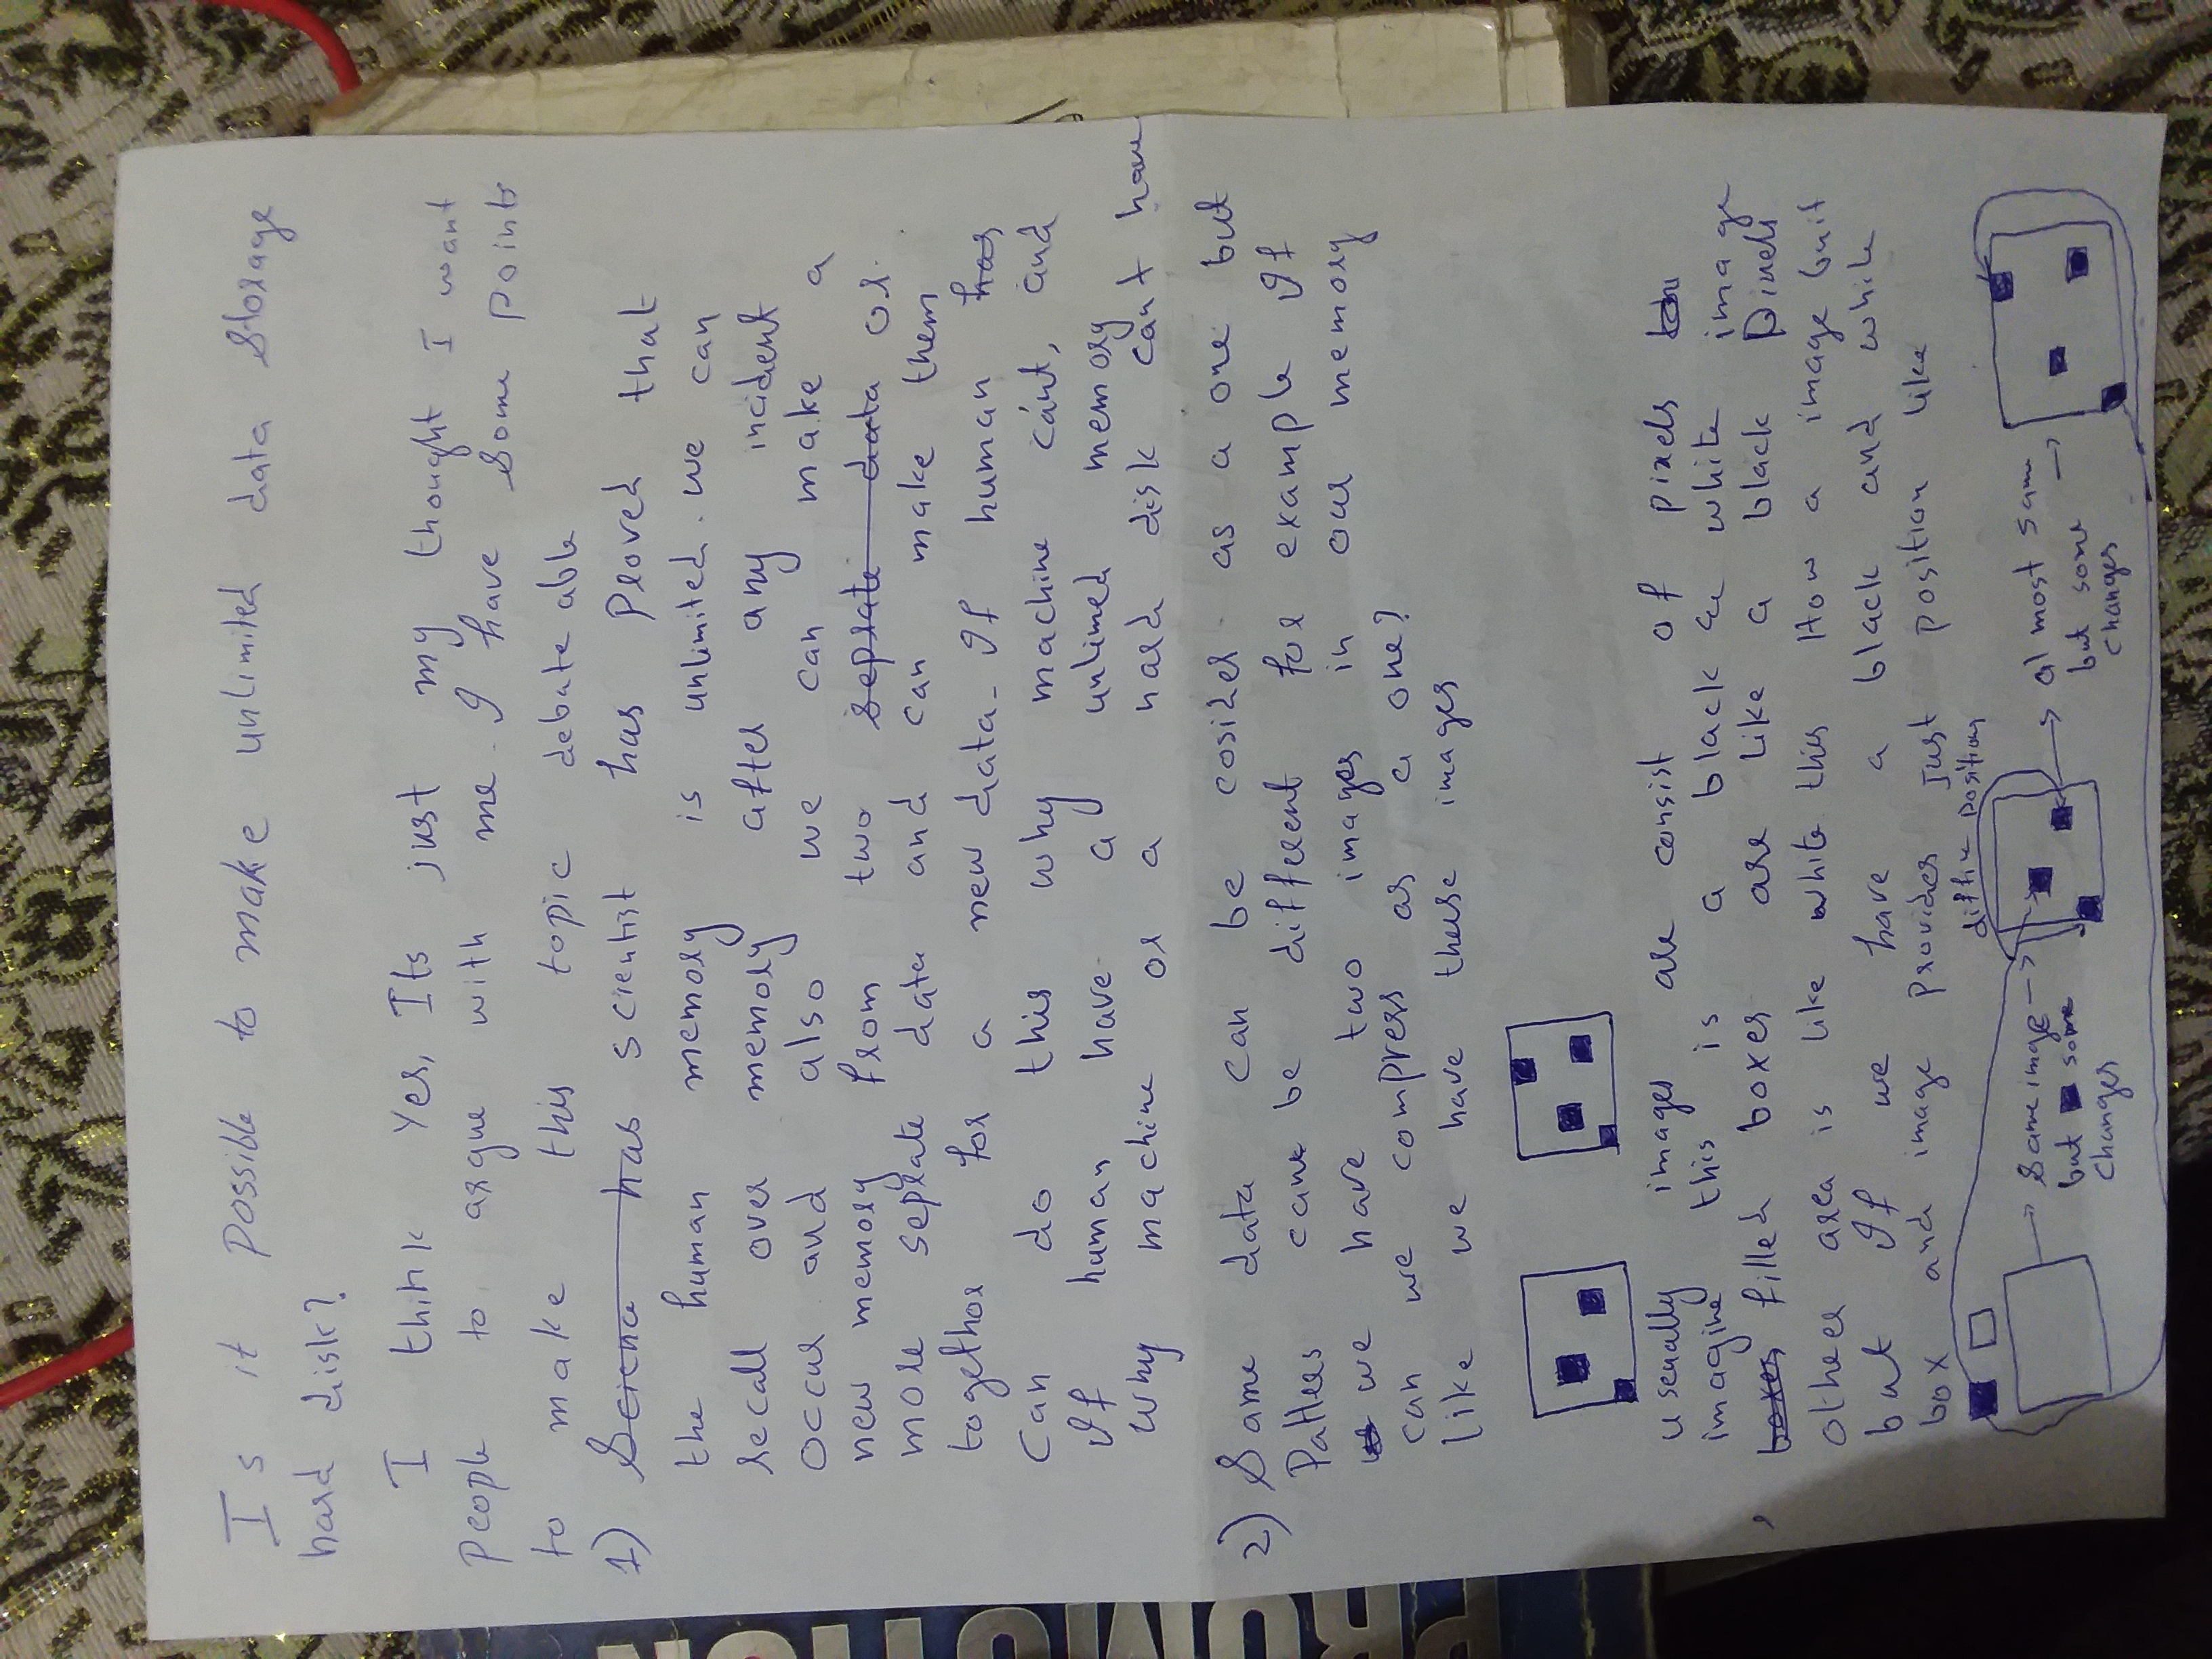 Is it possible to make unlimited data storage
hard disk?
I think Yes, Its just my thought I want
people to argue with me. I have some points
to make this topic debate able
1) Science has scientist has proved that
the human memory is unlimited. we can
recall over memory after any incident
occur and also we can make a
new memory from two seprate data or
more seprate data and can make them
togethor for a new data. If human has
can do this why machine can't, and
If human have a unlimed memory
why machine or a hard disk can't have
2) Same data can be cosider as a one but
Patters cane be different for example If
we we have two images in our memory
can we compress as a one?
like we have these images
usenally images are consist of pixels
imagine this is a black & white image
boxes filled boxes are like a black pixels
otheer area is like white this How a image buit
but If we have a black and white
box and image provides just position like
differ positions
Same imge but some changes
almost same but some changes
PROMOTION